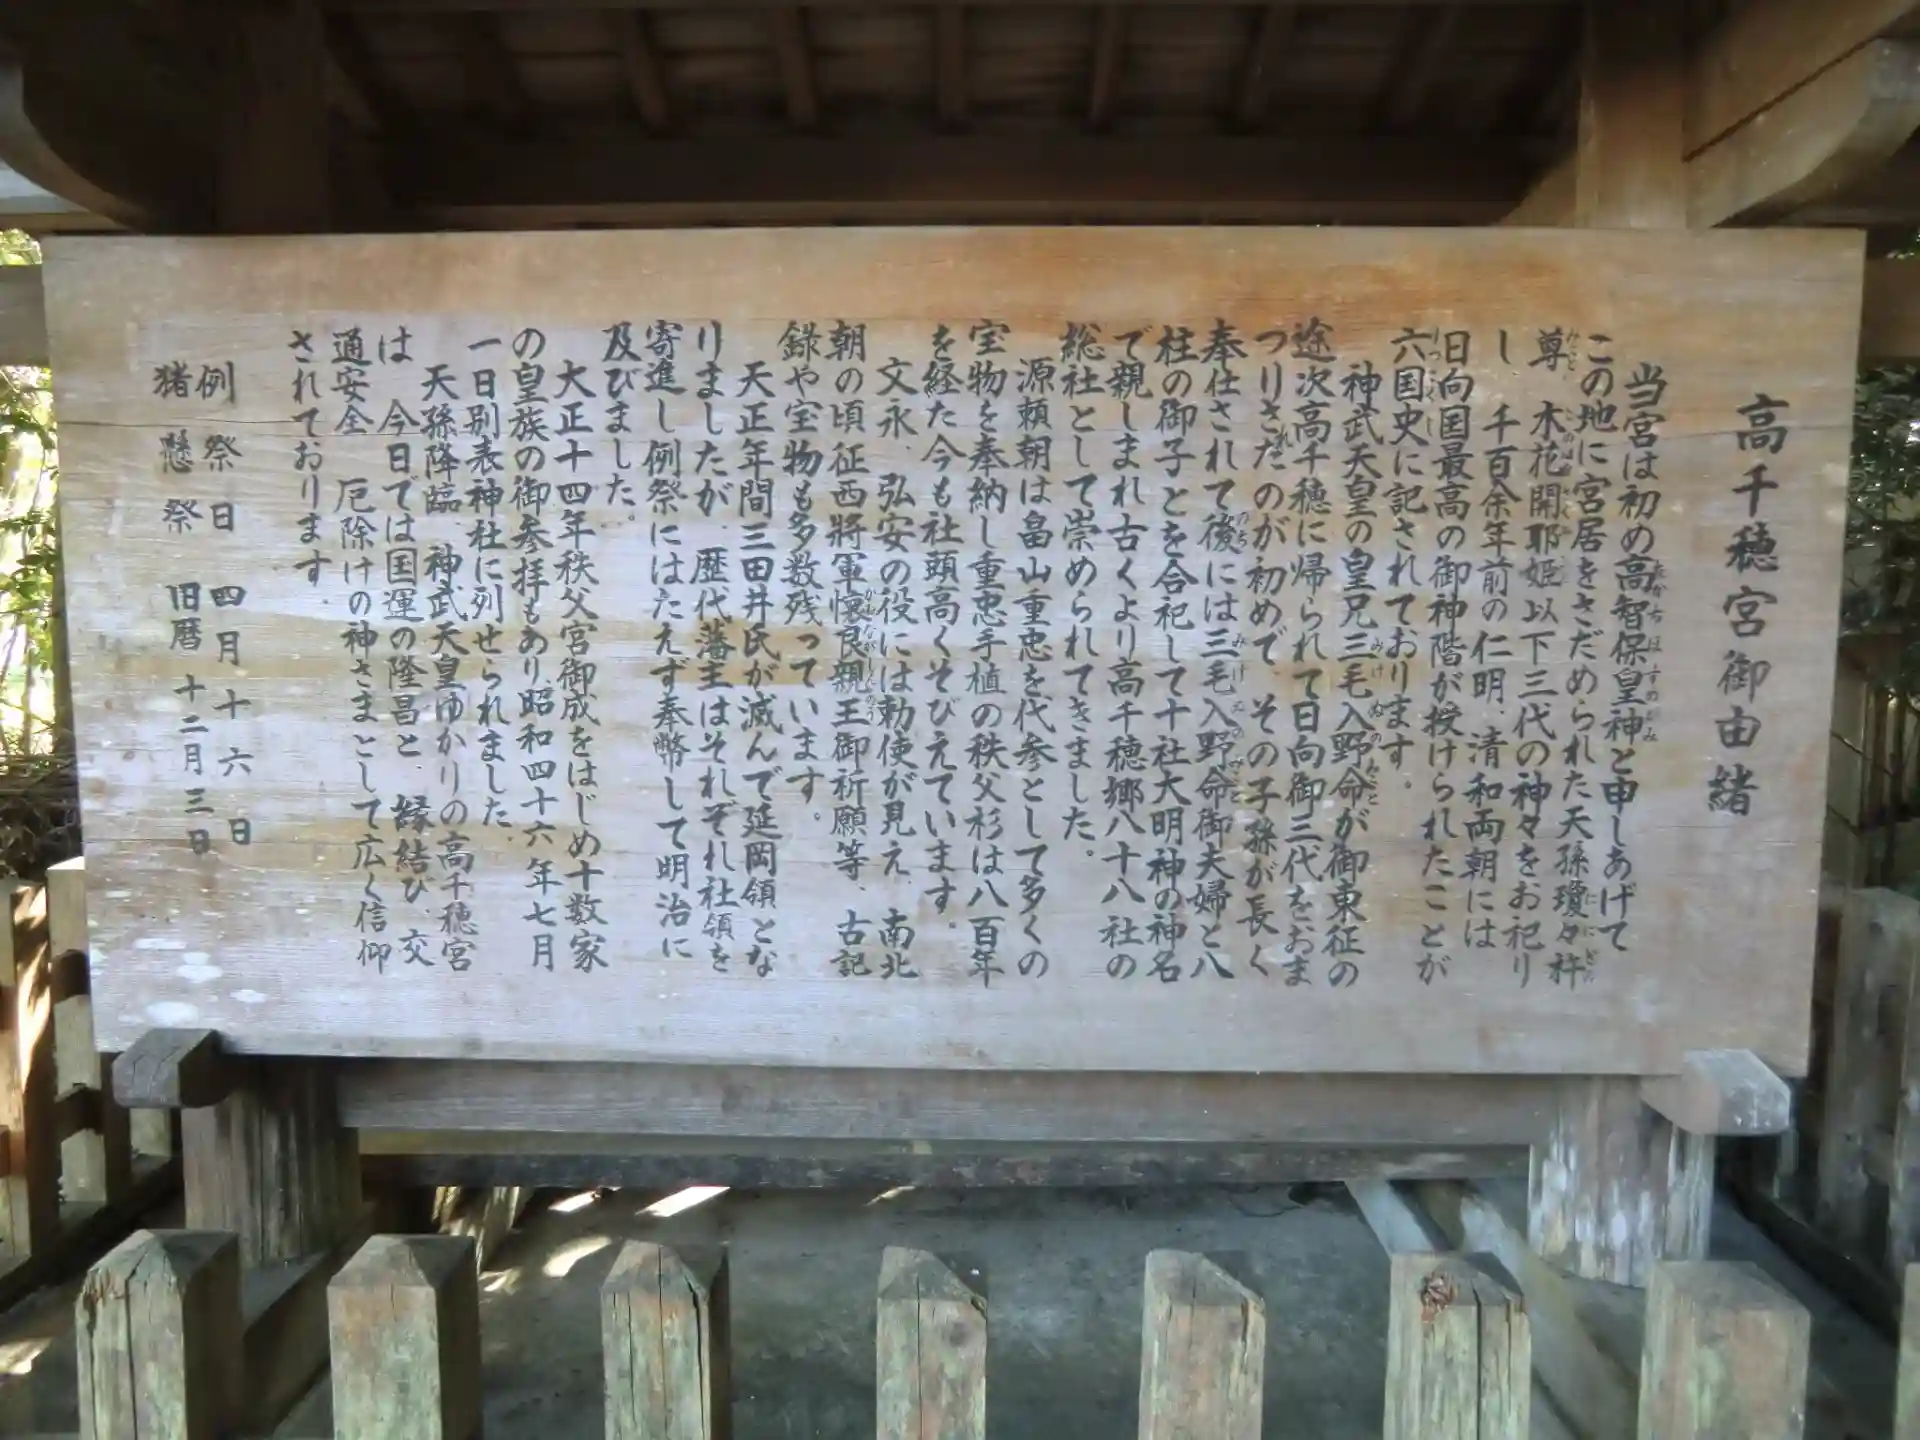 高千穂宮御由緒
当宮は初め高智保皇神と申しあげて
この地に宮居をさだめられた天孫瓊々杵
尊、木花開耶姫以下三代の神々をお祀り
し 千百余年前の仁明、清和両朝には
日向国最高の御神階が授けられたことが
六国史に記されております。
神武天皇の皇兄三毛入野命が御東征の
途次高千穂に帰られて日向御三代をおま
つりされたのが初めで、その子孫が長く
奉仕されて後には三毛入野命御夫婦と八
柱の御子とを合祀して十社大明神の神名
で親しまれ古くより高千穂郷八十八社の
総社として崇められてきました。
源頼朝は畠山重忠を代参として多くの
宝物を奉納し重忠手植の秩父杉は八百年
を経た今も社頭高くそびえています。
文永、弘安の役には勅使が見え、南北
朝の頃征西将軍懐良親王御祈願等、古記
録や宝物も多数残っています。
天正年間三田井氏が滅んで延岡領とな
りましたが、歴代藩主はそれぞれ社領を
寄進し例祭にはたえず奉幣して明治に
及びました。
大正十四年秩父宮御成をはじめ十数家
の皇族の御参拝もあり、昭和四十六年七月
一日別表神社に列せられました。
天孫降臨、神武天皇ゆかりの高千穂宮
は 今日では国運の隆昌と、縁結び、交
通安全、厄除けの神さまとして広く信仰
されております。
例祭日 四月十六日
猪懸祭 旧暦十二月三日